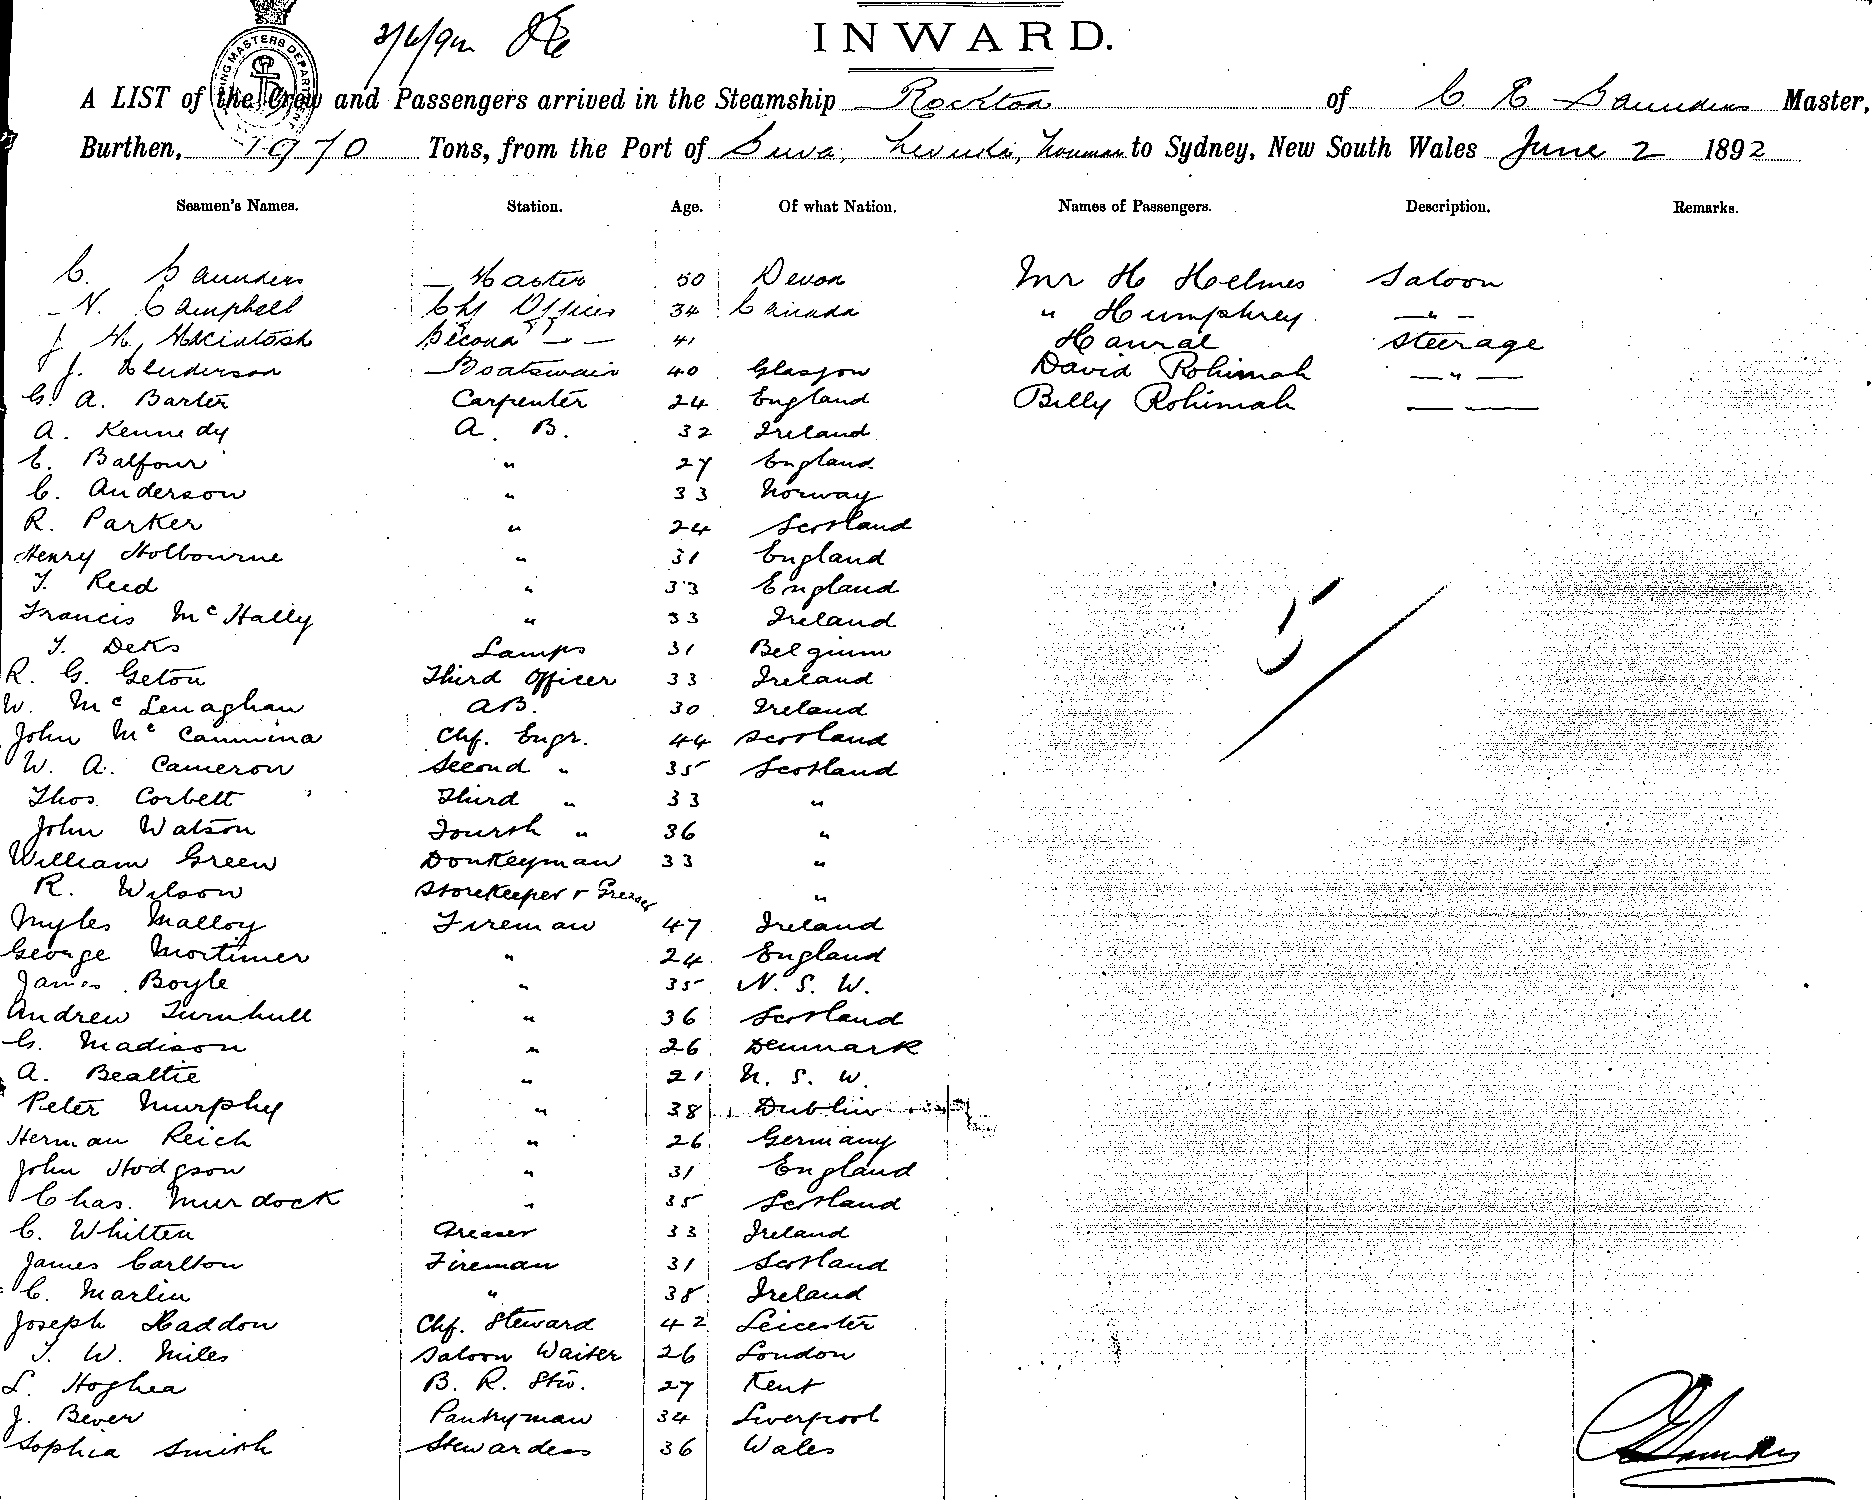 2/6/92
INWARD.
A LIST of the Crew and Passengers arrived in the Steamship Rockton of C E Saunders Master,
Burthen, 1970 Tons, from the Port of Suva, Levuka, Noumea to Sydney, New South Wales June 2 1892
Seamen's Names. Station. Age. Of what Nation. Names of Passengers. Description. Remarks.
C. Saunders Master 50 Devon Mr H Holmes Saloon
N. Campbell Chf Officer 34 Canada " Humphrey "
J. H. McKintosh Second " 41 Steerage
J. Henderson Boatswain 40 Glasgow David Rohimah "
G. A. Barter Carpenter 24 England Billy Rohimah
A. Kennedy A. B. 32 Ireland
E. Balfour " 27 England
C. Anderson " 33 Norway
R. Parker " 24 Scotland
Henry Holbourne " 31 England
T. Reed " 33 England
Francis McHally " 33 Ireland
T. Deks Lamps 31 Belgium
R. G. Geton Third Officer 33 Ireland
W. McLenaghan AB. 30 Ireland
John Mc Chf. Engr. 44 Scotland
W. A. Cameron Second " 35 Scotland
Thos. Corbett Third " 33 "
John Watson Fourth " 36 "
William Green Donkeyman 33 "
R. Wilson Storekeeper & Greaser "
Myles Malloy Fireman 47 Ireland
George Mortimer " 24 England
James Boyle " 35 N. S. W.
Andrew Turnbull " 36 Scotland
G. Madison " 26 Denmark
A. Beattie " 21 N. S. W.
Peter Murphy " 38 Dublin
Herman Reich " 26 Germany
John Hodgson " 31 England
Chas. Murdock " 35 Scotland
C. Whitten Greaser 33 Ireland
James Carlton Fireman 31 Scotland
C. Martin " 38 Ireland
Joseph Haddon Chf. Steward 42 Leicester
T. W. Miles Saloon Waiter 26 London
L. Hoghea B. R. Stw. 27 Kent
J. Bever Pantryman 34 Liverpool
Sophia Smith Stewardess 36 Wales
5/
CE Saunders